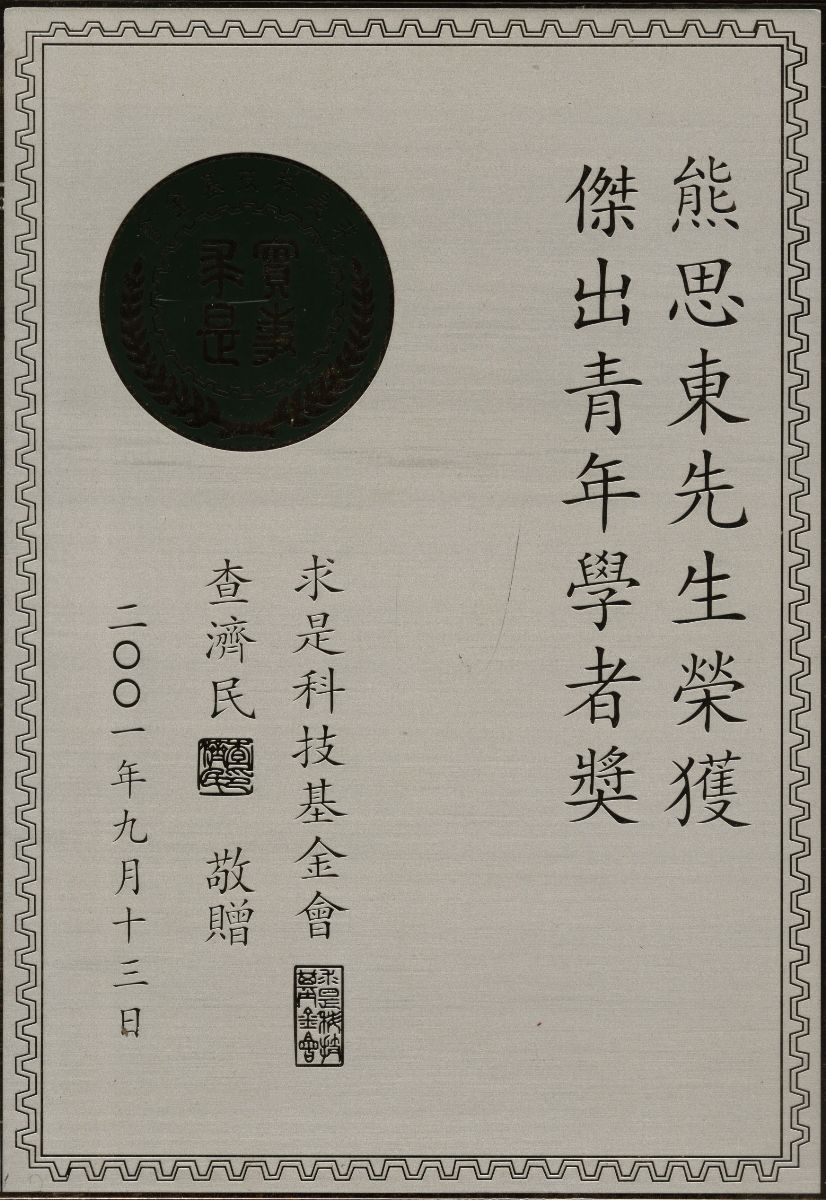 熊思東先生榮獲
傑出青年學者獎
求是科技基金會
查濟民 敬贈
二〇〇一年九月十三日
求是科技基金會
實事求是
求是科技基金會
查濟民